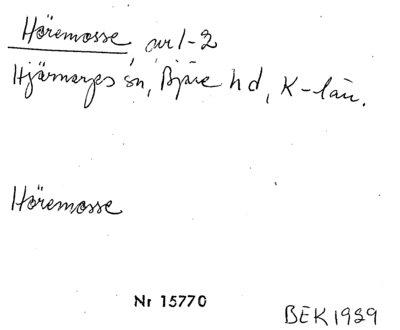 Höremosse, avr 1-2
Hjärnarps sn, Bjäre hd, K-län.
Höremosse
Nr 15770
BEK 1929